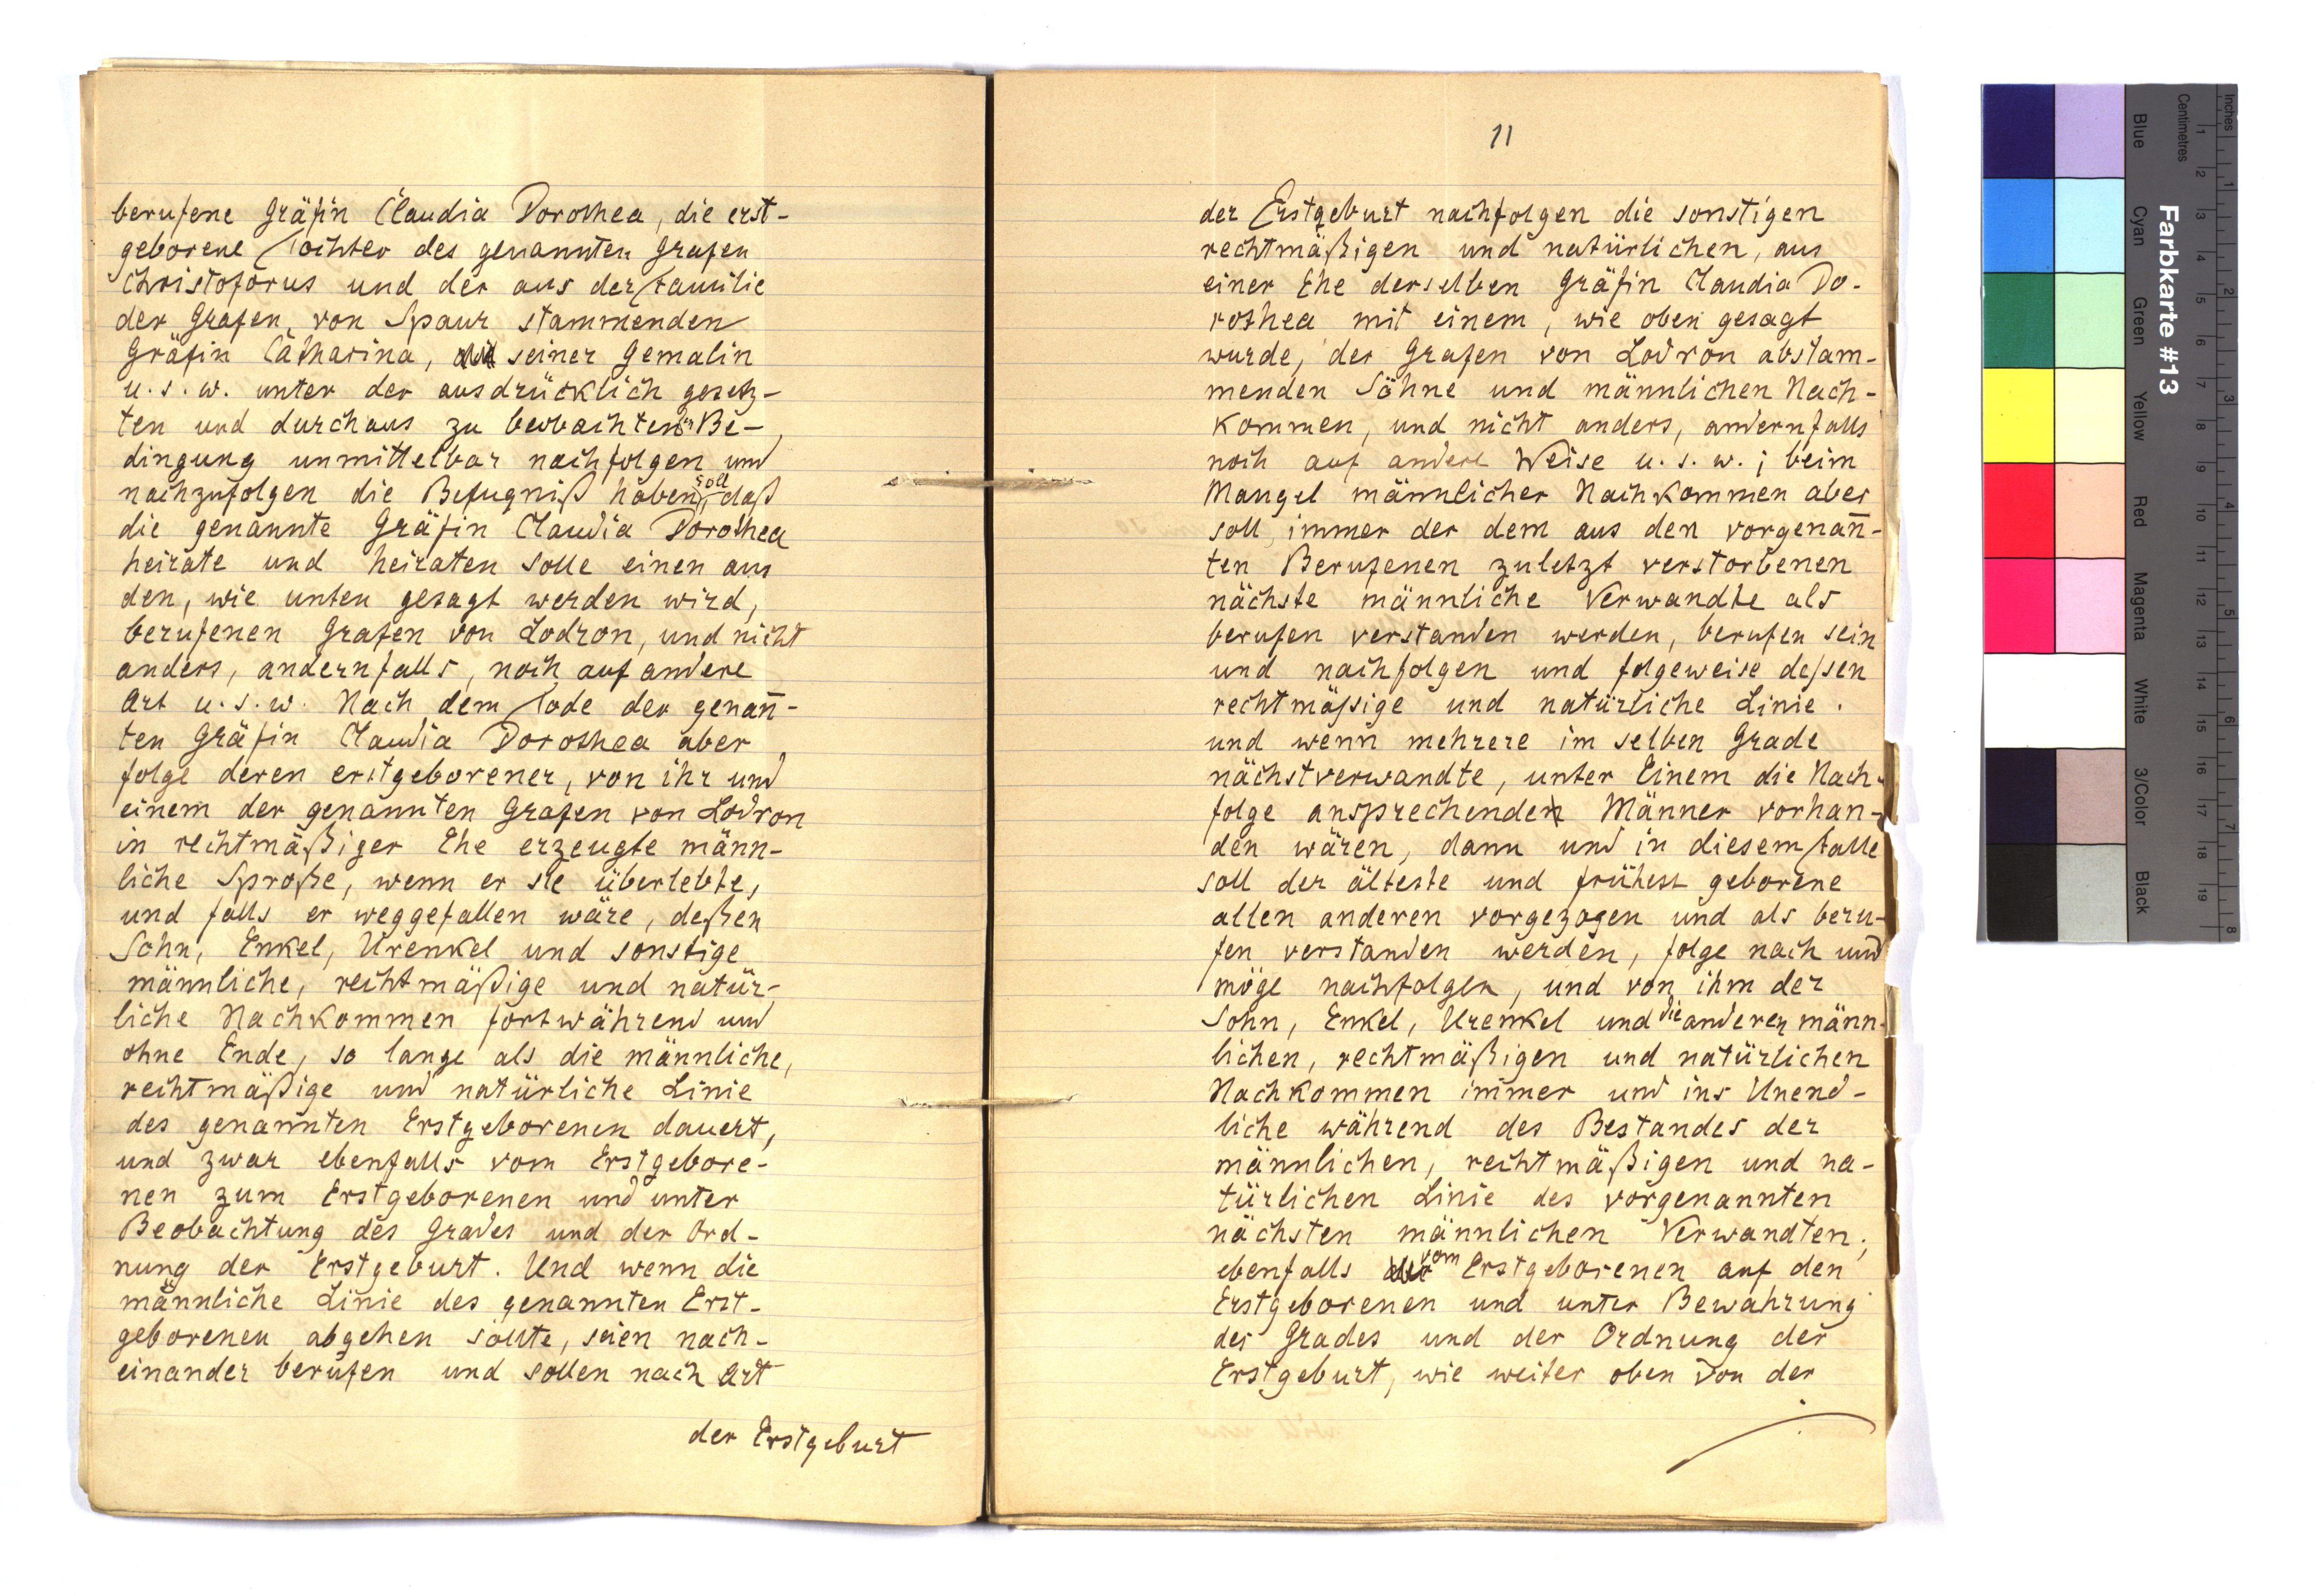 berufene Gräfin Claudia Dorothea, die erst-
geborene Tochter des genannten Grafen
Christoforus und der aus der Familie
der Grafen von Spaur stammenden
Gräfin Catharina, seiner Gemalin
u. s. w. unter der ausdrücklich gesetz-
ten und durchaus zu beobachtenden Be-
dingung unmittelbar nachfolgen und
nachzufolgen die Befugniß haben soll, daß
die genannte Gräfin Claudia Dorothea
heirate und heiraten solle einen aus
den, wie unten gesagt werden wird,
berufenen Grafen von Lodron, und nicht
anders, andernfalls, noch auf andere
Art u. s. w. Nach dem Tode der genan̄-
ten Gräfin Claudia Dorothea aber
folge deren erstgeborener, von ihr und
einem der genannten Grafen von Lodron
in rechtmäßiger Ehe erzeugte männ-
liche Sproße, wenn er sie überlebte,
und falls er weggefallen wäre, deßen
Sohn, Enkel, Urenkel und sonstige
männliche, rechtmäßige und natür-
liche Nachkommen fortwährend und
ohne Ende, so lange als die männliche,
rechtmäßige und natürliche Linie
des genannten Erstgeborenen dauert,
und zwar ebenfalls vom Erstgebore-
nen zum Erstgeborenen und unter
Beobachtung des Grades und der Ord-
nung der Erstgeburt. Und wenn die
männliche Linie des genannten Erst-
geborenen abgehen sollte, seien nach-
einander berufen und sollen nach Art
der Erstgeburt
11
der Erstgeburt nachfolgen die sonstigen
rechtmäßigen und natürlichen, aus
einer Ehe derselben Gräfin Claudia Do-
rothea mit einem, wie oben gesagt
wurde, der Grafen von Lodron abstam-
menden Söhne und männlichen Nach-
kommen, und nicht anders, andernfalls
noch auf andere Weise u. s. w. ; beim
Mangel männlicher Nachkommen aber
soll immer der dem aus den vorgenan̄-
ten Berufenen zuletzt verstorbenen
nächste männliche Verwandte als
berufen verstanden werden, berufen sein
und nachfolgen und folgeweise deßen
rechtmäßige und natürliche Linie.
und wenn mehrere im selben Grade
nächstverwandte, unter Einem die Nach-
folge ansprechenden Männer vorhan-
den wären, dann und in diesem Falle
soll der älteste und frühest geborene
allen anderen vorgezogen und als beru-
fen verstanden werden, folge nach und
möge nachfolgen, und von ihm der
Sohn, Enkel, Urenkel und die anderen männ-
lichen, rechtmäßigen und natürlichen
Nachkommen immer und ins Unend-
liche während des Bestandes der
männlichen, rechtmäßigen und na-
türlichen Linie des vorgenannten
nächsten männlichen Verwandten;
ebenfalls vom Erstgeborenen auf den
Erstgeborenen und unter Bewahrung
des Grades und der Ordnung der
Erstgeburt, wie weiter oben von der
Farbkarte #13
Inches 1 2 3 4 5 6 7 8
Centimetres 1 2 3 4 5 6 7 8 9 10 11 12 13 14 15 16 17 18 19
Blue Cyan Green Yellow Red Magenta White 3/Color Black